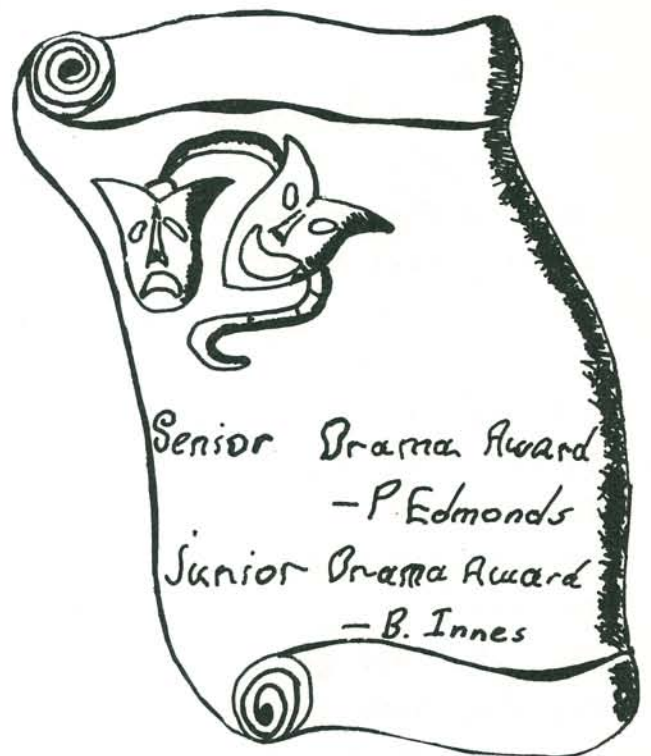 Senior Drama Award
- P Edmonds
Junior Drama Award
- B. Innes